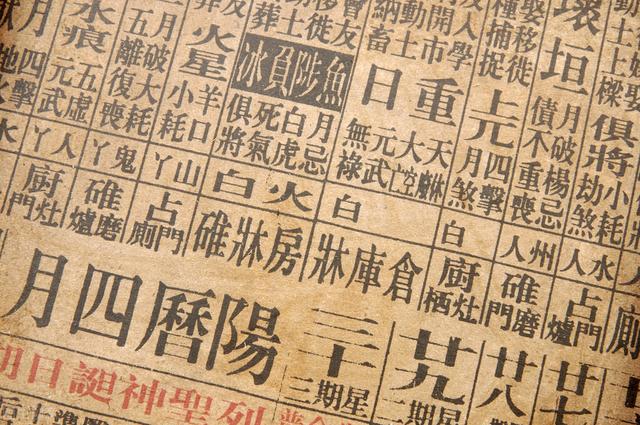 俱將
小耗
劫煞
壞垣
月破
楊忌
債不
重喪
娶移徙
種捕捉
上元
四擊
月煞
人學
開市
動土
納畜
重日
天
大空
元武
無祿
友
移徙
葬土
魚陟負冰
月忌
白虎
死氣
俱將
火星
羊口
小耗
月破大耗
五離復喪
水痕
五虛
元武
四擊
水人
州人
白
白
火白
山丫
鬼丫
人丫
水
廁
占門爐
碓磨門
廚灶栖
倉庫牀
房牀碓
占門廁
碓磨爐
廚灶門
廿七
廿八
廿九
星期二
三十
星期三
陽曆四月
列聖神誕日